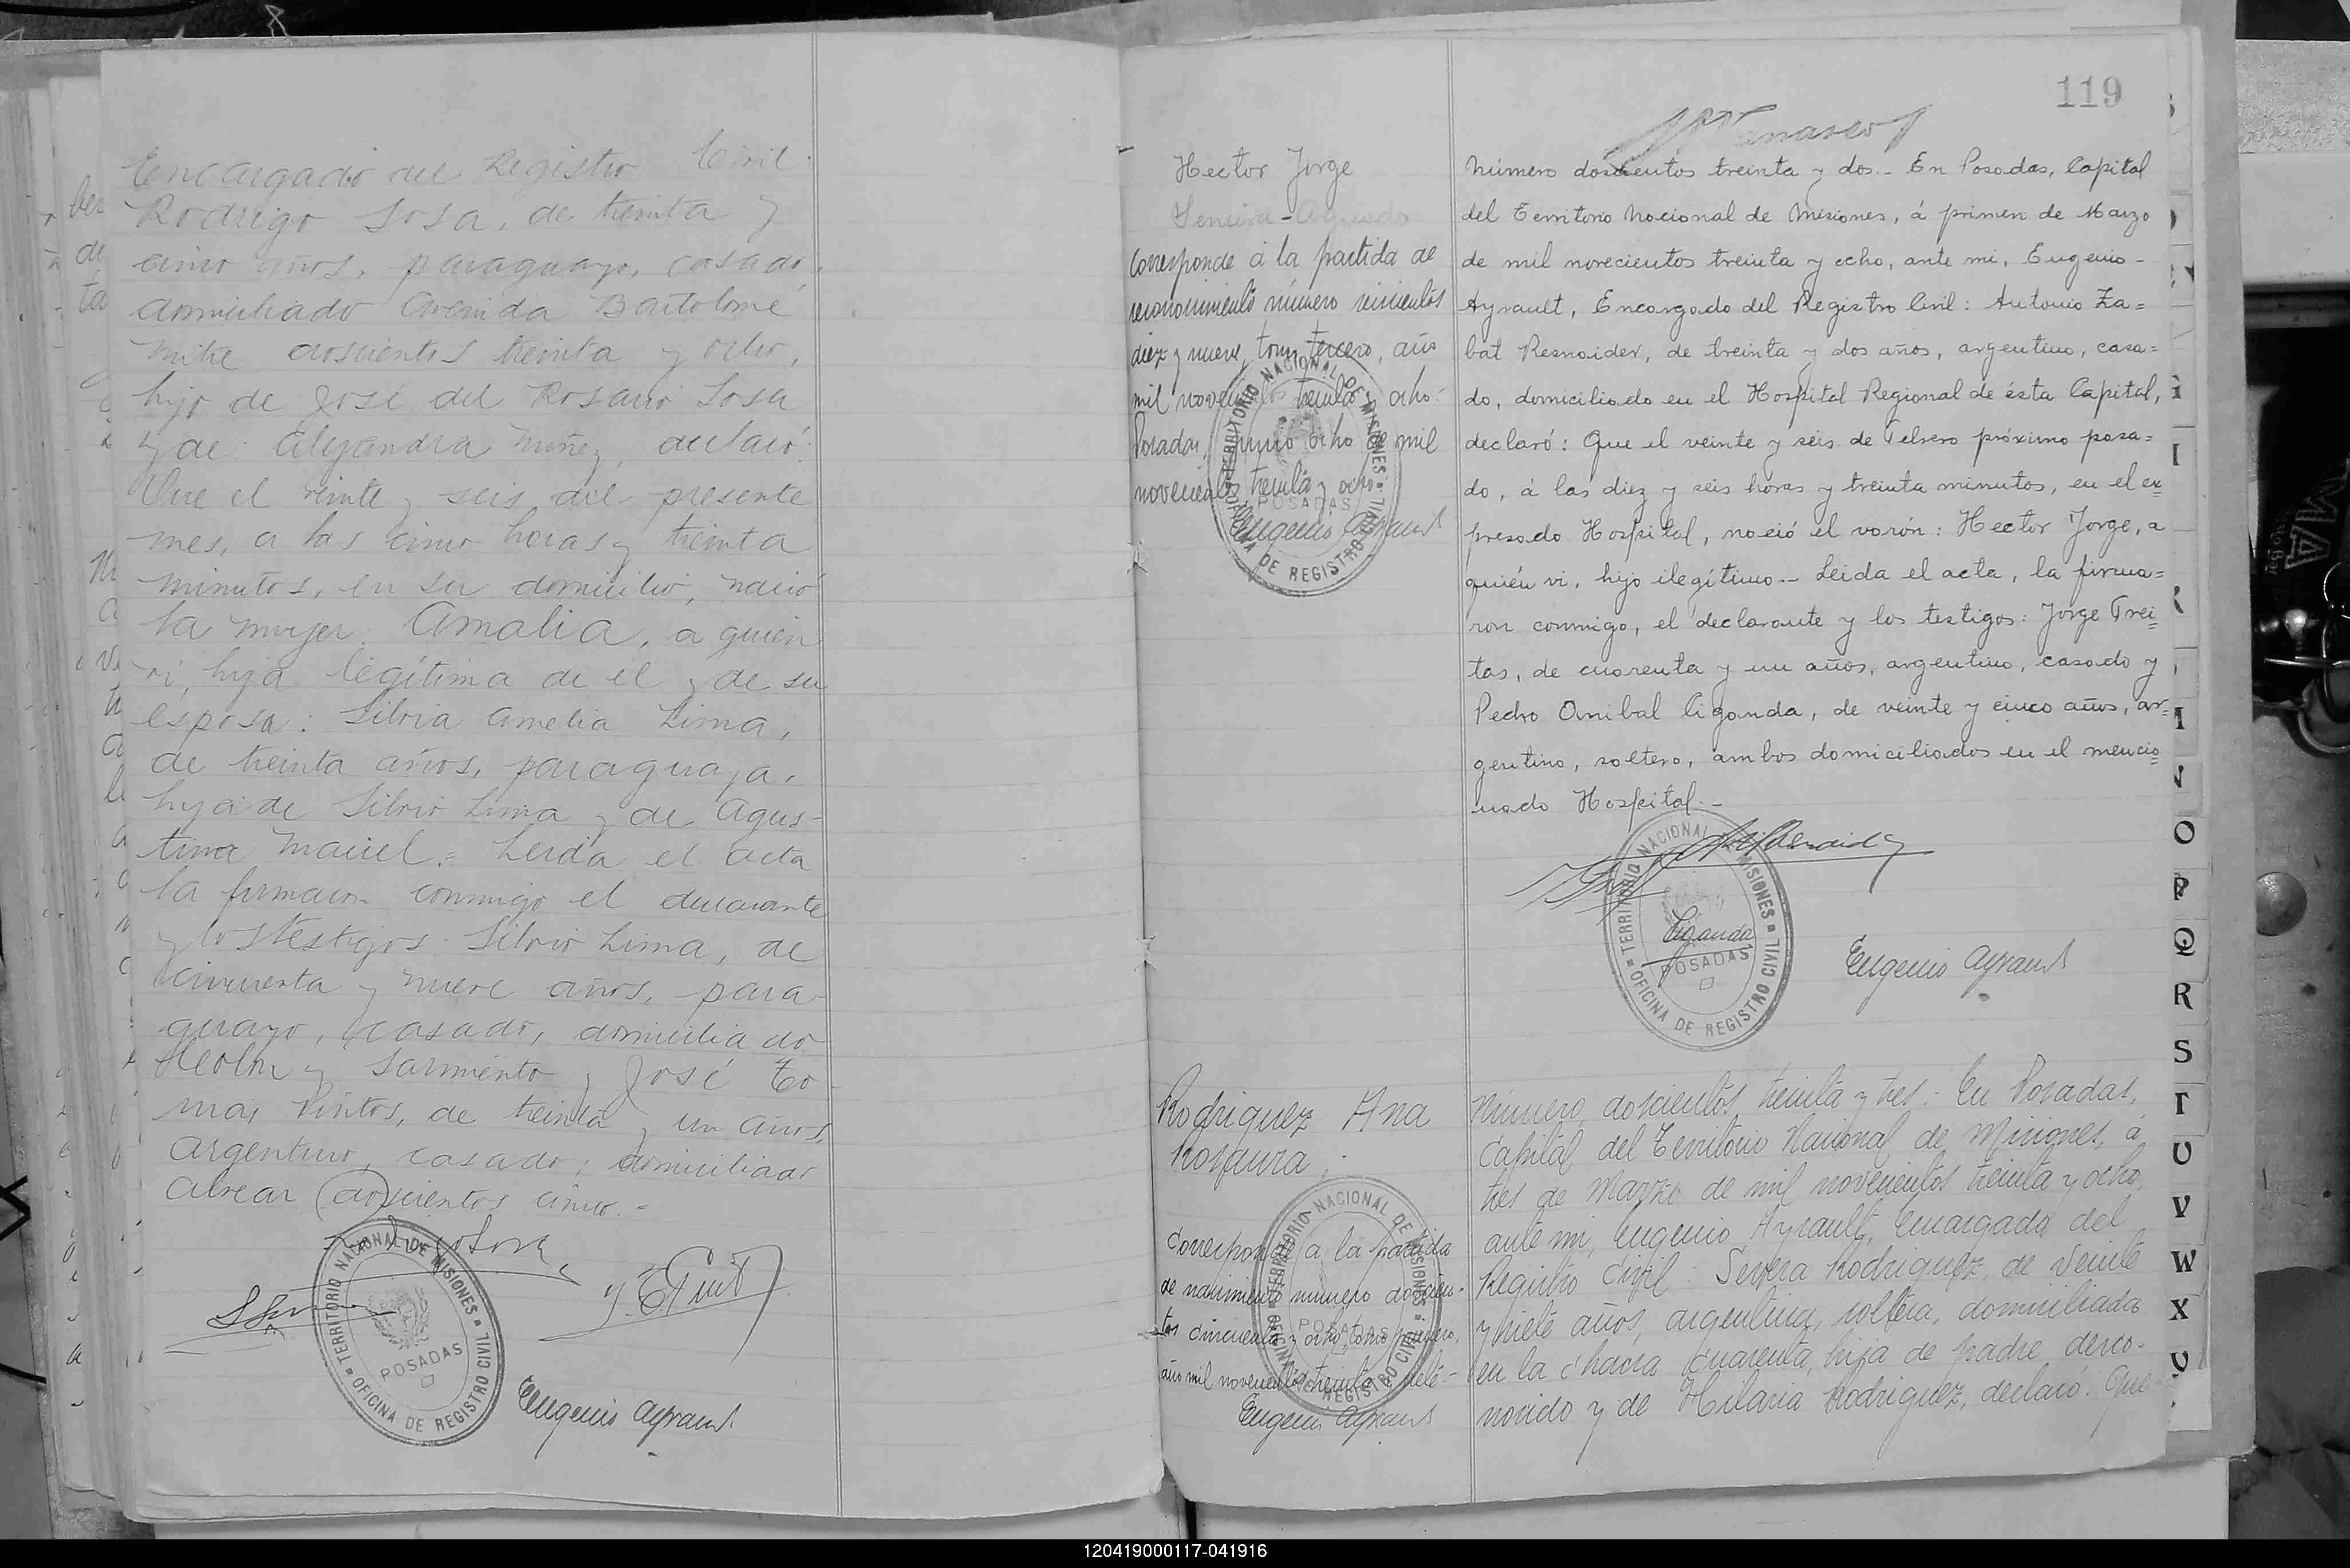 Encargado del Registro Civil:
Rodrigo Sosa, de treinta y
cinco años, paraguayo, casado,
domiciliado Avenida Bartolomé
Mitre doscientos treinta y ocho,
hijo de José del Rosario Sosa
y de Alejandra Nuñez, declaró:
Que el veinte y seis del presente
mes, a las cinco horas y treinta
minutos, en su domicilio, nació
la mujer: Amalia, a quien
vi, hija legítima de el y de su
esposa: Silvia Amelia Lima,
de treinta años, paraguaya,
hija de Silvio Lima y de Agus-
tina Maciel.= Leida el acta
la firmaron conmigo el declarante
y los testigos: Silvio Lima, de
cincuenta y nueve años, para-
guayo, casado, domiciliado
y Sarmiento y José To-
mas Pintos, de treinta y un años,
argentino, casado, domiciliado
Alvear doscientos cinco.=
TERRITORIO NACIONAL DE MISIONES
POSADAS
OFICINA DE REGISTRO CIVIL
Eugenio Ayrault
119
Hector Jorge
Corresponde á la partida de
reconocimiento número seiscientos
diez y nueve, tomo tercero, año
mil novecientos treinta y ocho:
Posadas, junio ocho de mil
novecientos treinta y ocho.
Eugenio Ayrault
TERRITORIO NACIONAL DE MISIONES
POSADAS
OFICINA DE REGISTRO CIVIL
Número doscientos treinta y dos.- En Posadas, Capital
del Territorio Nacional de Misiones, á primero de Marzo
de mil novecientos treinta y ocho, ante mi, Eugenio-
Ayrault, Encargado del Registro Civil: Antonio Za=
bat Resnoider, de treinta y dos años, argentino, casa=
do, domiciliado en el Hospital Regional de ésta Capital,
declaró: Que el veinte y seis de Febrero próximo pasa=
do, á las diez y seis horas y treinta minutos, en el ex=
presado Hospital, nació el varón: Hector Jorge, a
quién vi, hijo ilegítimo.- Leida el acta, la firma=
ron conmigo, el declarante y los testigos: Jorge Frei=
tas, de cuarenta y un años, argentino, casado y
Pedro Anibal Ciganda, de veinte y cinco años, ar=
gentino, soltero, ambos domiciliados en el mencio=
nado Hospital.-
Ciganda
TERRITORIO NACIONAL DE MISIONES
POSADAS
OFICINA DE REGISTRO CIVIL
Eugenio Ayrault
Rodriguez Ana
Rosaura.
Corresponde a la partida
de nacimiento número doscien-
tos cincuenta y ocho, tomo primero,
año mil novecientos treinta y siete.-
Eugenio Ayrault
TERRITORIO NACIONAL DE MISIONES
POSADAS
OFICINA DE REGISTRO CIVIL
Número doscientos treinta y tres.- En Posadas,
Capital del Territorio Nacional de Misiones, á
tres de Marzo de mil novecientos treinta y ocho,
ante mi, Eugenio Ayrault, Encargado del
Registro Civil: Severa Rodriguez, de veinte
y siete años, argentina, soltera, domiciliada
en la chacra cuarenta, hija de padre desco-
nocido y de Hilaria Rodriguez, declaró: Que
O
P
Q
R
S
T
U
V
W
X
120419000117-041916